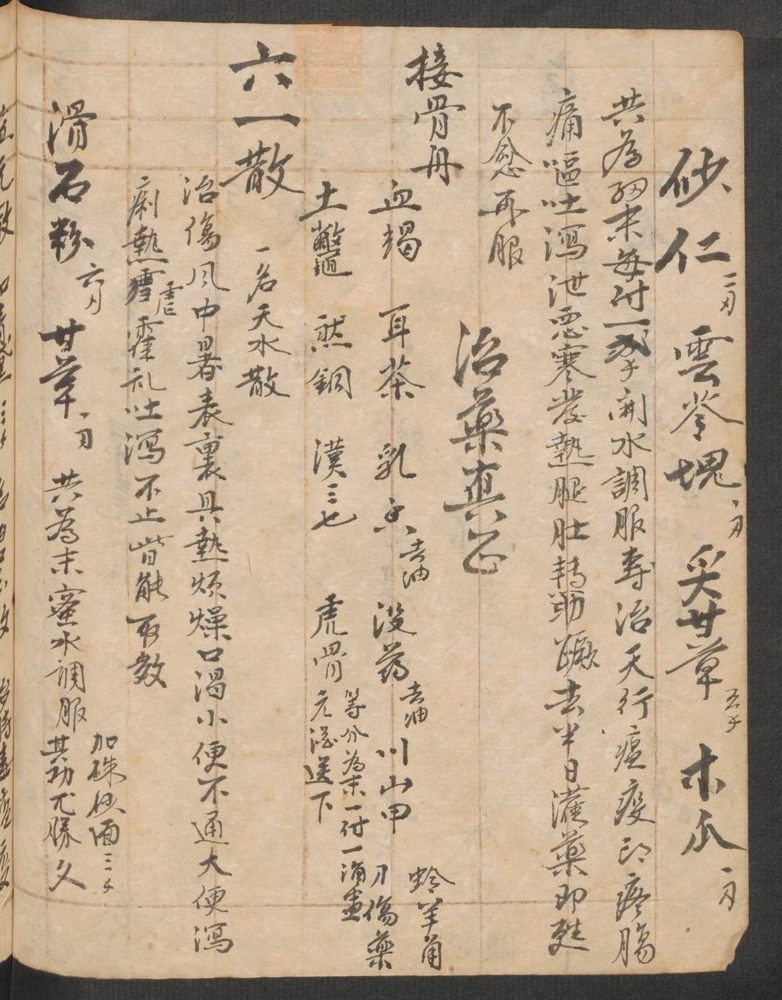 砂仁二刄 雲苓塊一刄 炙甘草五子 木瓜一刄
共為細末每付一子開水調服專治天行瘟疫 疼腸
痛嘔吐瀉泄惡寒發熱腿肚轉筋 去半日灌藥即甦
不愈再服
治藥真
接骨丹
血竭 耳茶 乳香去油 没药去油 川山甲 羚羊角
土鱉 然銅 漢三七 虎骨 等分為末一付一 刀傷藥
元酒送下
六一散 一名天水散
治傷風中暑表裏具熱煩燥口渴小便不通大便瀉
痢熱瘧霍乱吐瀉不止皆能取效
滑石粉六刄 甘草一刄 共為末蜜水調服其功尤勝久
加硃砂面三子